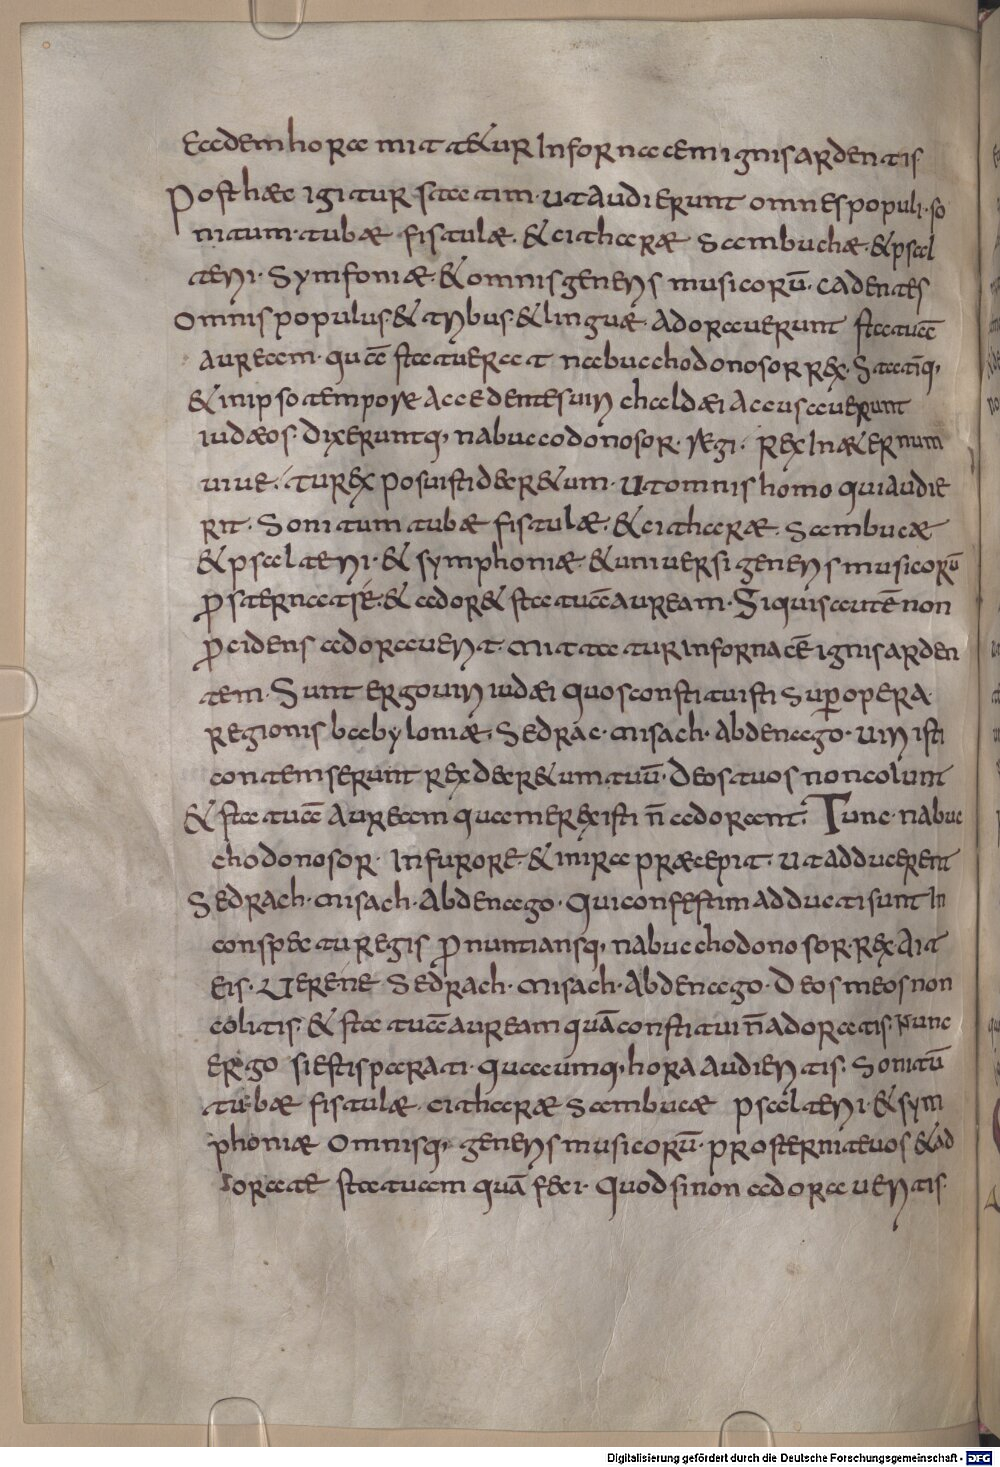 eadem hora mittetur In fornacem ignis ardentis
Post haec igitur statim ut audierunt omnes populi so
nitum tubæ fistulæ & citharæ sambuchæ & psal
terii symfoniæ & omnis generis musicorū cadentes
omnis populus & tribus & linguæ adoraverunt statuā
auream quā statuerat nabuchodonosor rex Statīq;
& in ipso tempore accedentes viri chaldæi accusaverunt
iudæos dixeruntq; nabucodonosor regi rex In æternum
vive tu rex posuisti decr&um ut omnis homo qui audie
rit sonitum tubæ fistulæ & citharæ sambucæ
& psalterii & symphoniæ & universi generis musicorū
p̄sternat sé & ador& statuā auream Si quis autē non
p̄cidens adoraverit mittatur In fornacē ignis arden
tem Sunt ergo viri iudæi quos constituisti sup̄ opera
regionis babyloniæ Sedrac misach Abdenago viri isti
contemserunt rex decr&um tuū deos tuos non colunt
& statuā auream quam erexisti n̄ adorant Tunc nabuc
chodonosor In furore & in ira præcepit ut adducerent
Sedrach misach Abdenago Qui confestim adducti sunt In
conspectu regis p̄nuntiansq; nabuchodonosor rex Ait
eis Vere né Sedrach misach Abdenago Deos meos non
colitis & statuā auream quā constitui n̄ adoratis Nunc
ergo si estis parati quacumq; hora audieritis sonitū
tubæ fistulæ citharæ sambucæ psalterii & sym
phoniæ omnisq; generis musicorū prosternite vos & ad
orate statuam quā feci Quod si non adoraveritis
Digitalisierung gefördert durch die Deutsche Forschungsgemeinschaft - DFG